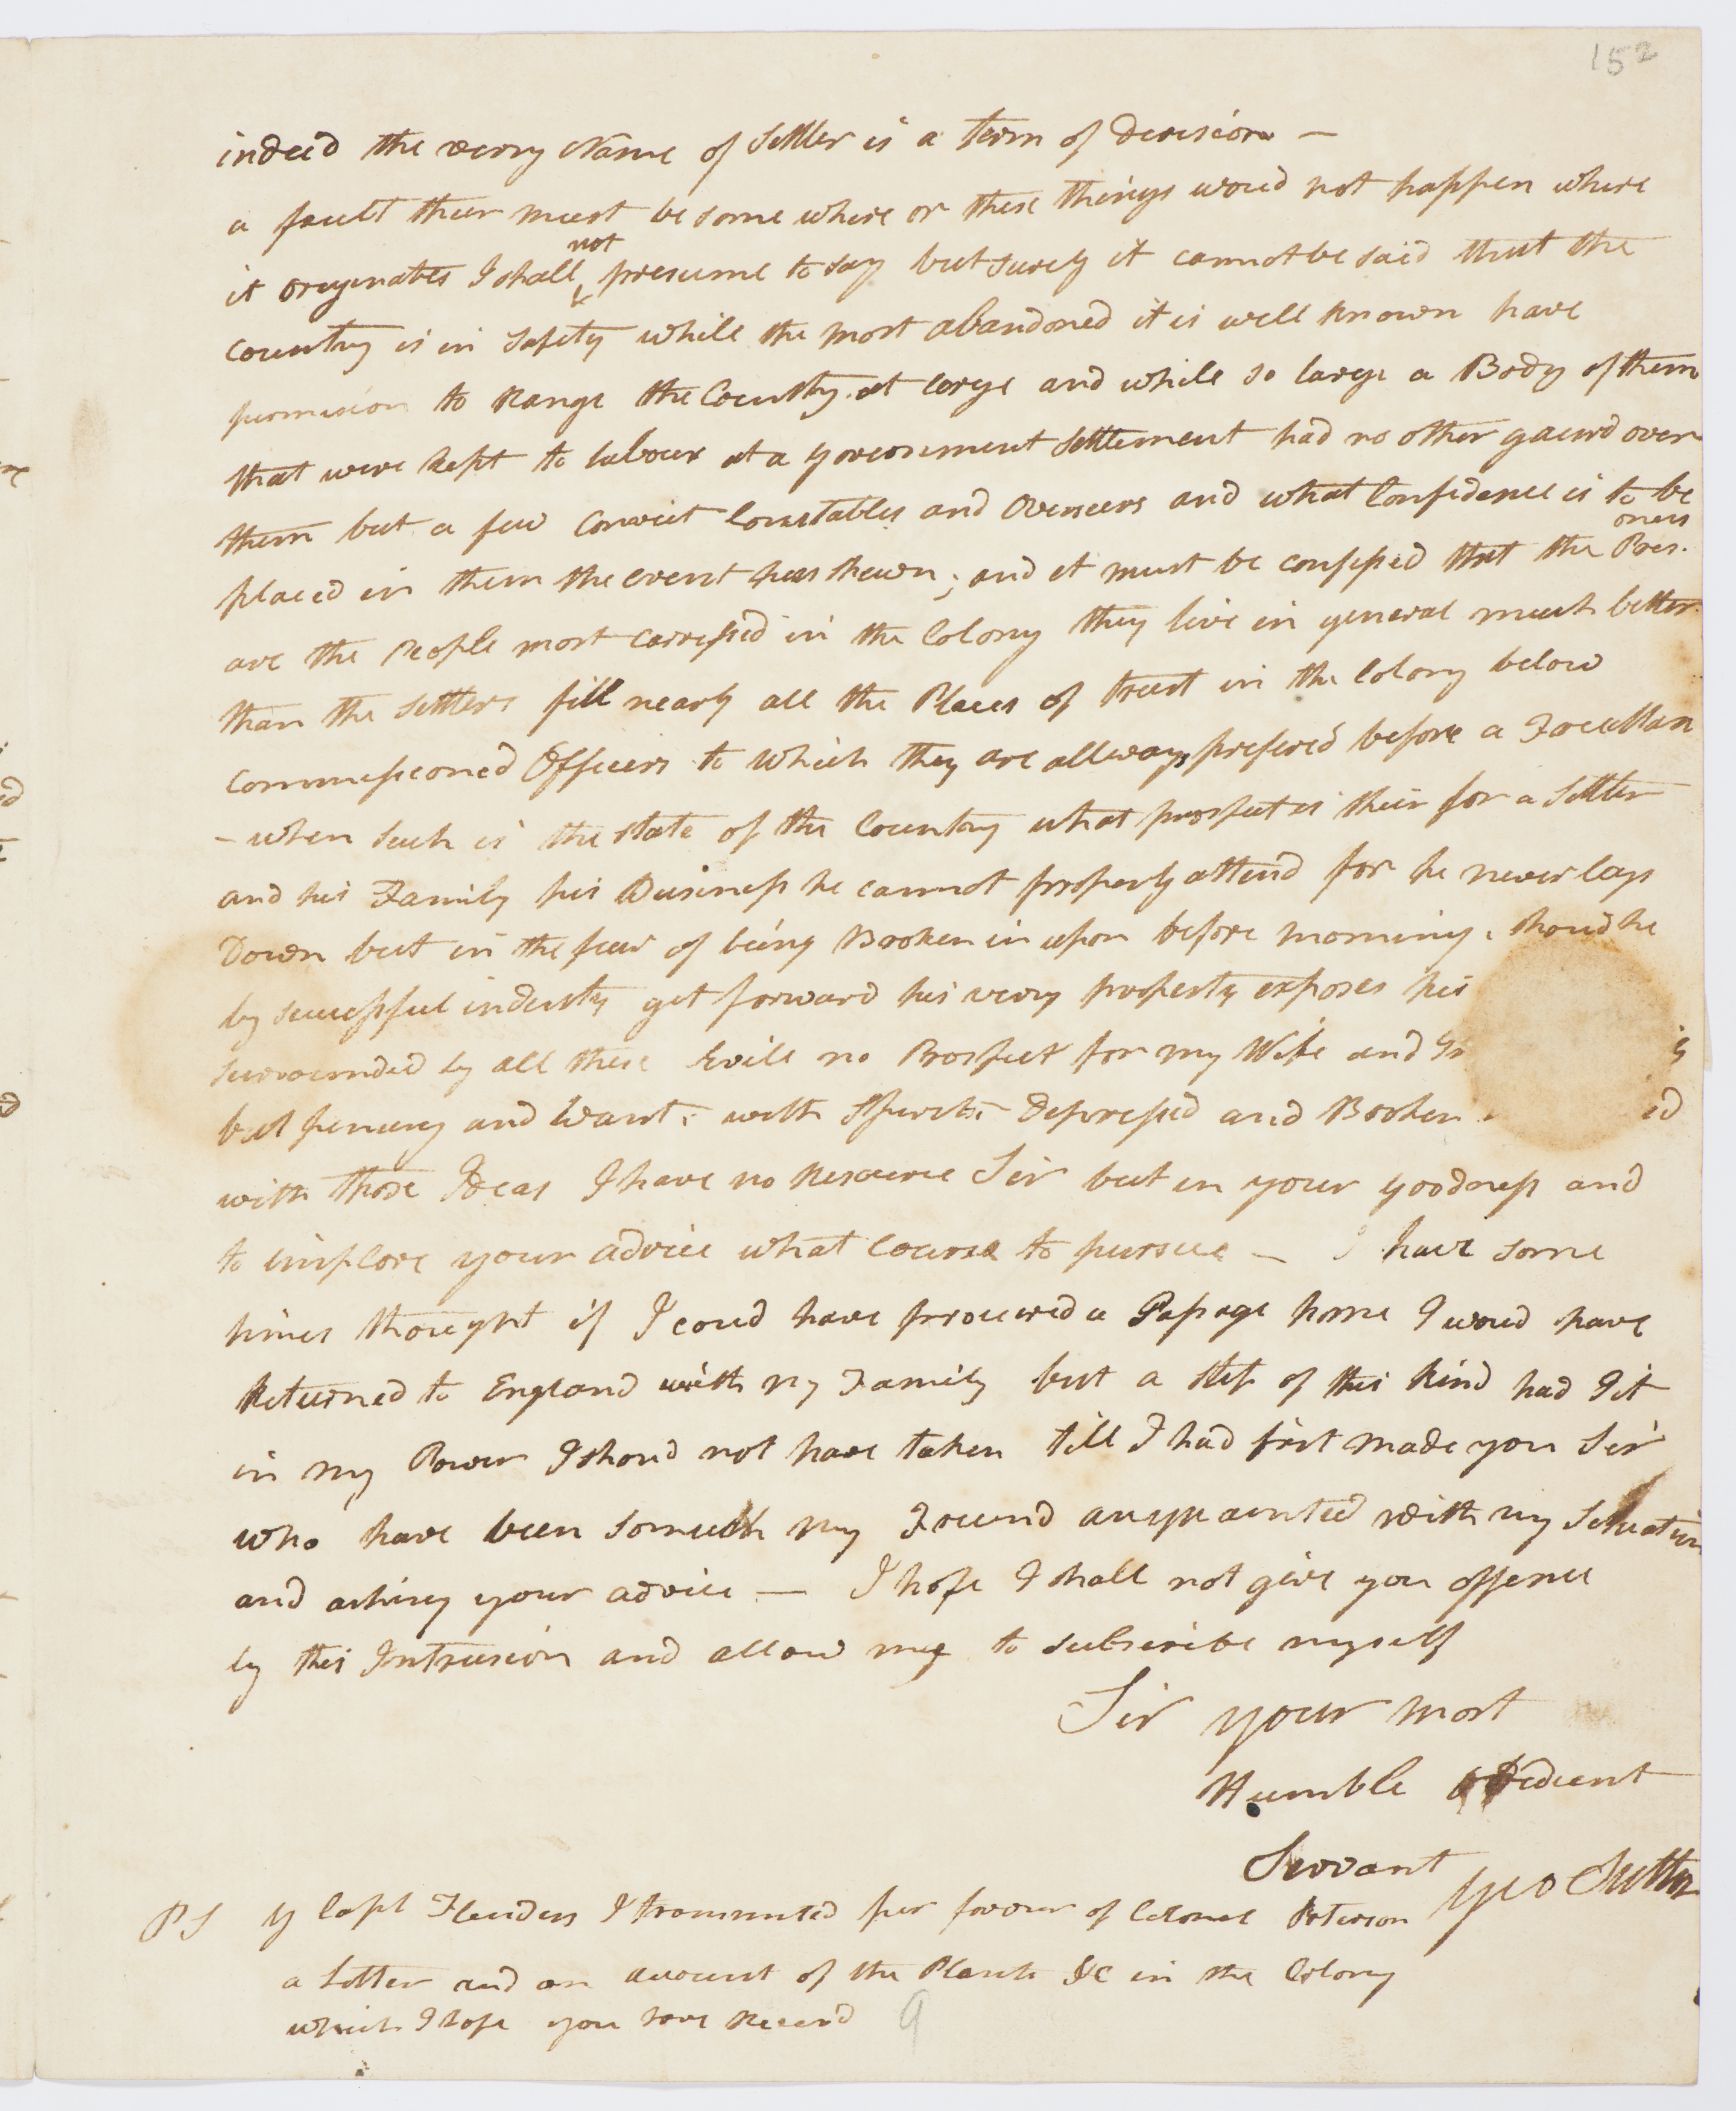 152
indeed the very Name of Settler is a term of Derision —
a fault their must be some where or these things woud not happen where
it originates I shall not presume to say but surely it cannot be said that the
Country is in Safety while the most abandoned it is well known have
permission to Range the Country at large and while so large a Body of them
that were kept to labour at a government Settlement had no other gaurd over
them but a few Convict Constables and Overseers and what Confidence is to be
placed in them the event has shewn; and it must be confessed that the Pris.oners
are the People most carressed in the Colony they live in general much better
than the settlers fill nearly all the Places of trust in the Colony below
Commissioned Officers to which they are allways prefered before a Free Man
– when such is the state of the Country what prospect is their for a Settler
and his Family his Business he cannot properly attend for he never lays
Down but in the fear of being Broken in upon before morning. shoud he
by successful industry get forward his very property exposes his
surrounded by all these Evils no Prospect for my Wife and
but penury and Want: with Spirits Depressed and Broken ed
with those Ideas I have no Resource Sir but in your goodness and
to implore your advice what Course to pursue — I have some
times thought if I coud have procured a Passage home I woud have
Returned to England with my Family but a step of this kind had I it
in my Power I shoud not have taken till I had first made you Sir
who have been so much my Freind acuquainted with my Situation
and asking your advice — I hope I shall not give you offence
by this Intrusion and allow me to subscribe myself
Sir your most
Humble obedient
Servant Geo Suttor
PS By Capt Flinders I transmited per favour of Colonel Peterson
a Letter and an account of the Plants &c in the Colony
which I hope you have Receivd 9